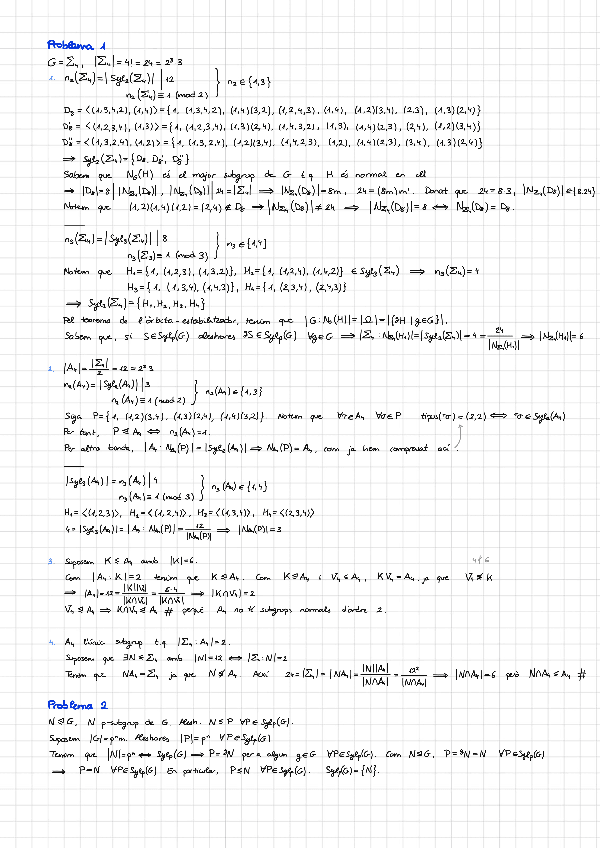 Problema 1
G = Σ₄, |Σ₄| = 4! = 24 = 2³·3
1. n₂(Σ₄) = |Syl₂(Σ₄)| | 12
n₂(Σ₄) ≡ 1 (mod 2) } n₂ ∈ {1,3}
D₈ = <(1,3,4,2), (1,4)> = {1, (1,3,4,2), (1,4)(3,2), (1,2,4,3), (1,4), (1,2)(3,4), (2,3), (1,3)(2,4)}
D₈' = <(1,2,3,4), (1,3)> = {1, (1,2,3,4), (1,3)(2,4), (1,4,3,2), (1,3), (1,4)(2,3), (2,4), (1,2)(3,4)}
D₈'' = <(1,3,2,4), (1,2)> = {1, (1,3,2,4), (1,2)(3,4), (1,4,2,3), (1,2), (1,4)(2,3), (3,4), (1,3)(2,4)}
⟹ Syl₂(Σ₄) = {D₈, D₈', D₈''}
Sabem que N_G(H) és el major subgrup de G t.q. H és normal en ell
⟹ |D₈| = 8 | |N_Σ₄(D₈)|, |N_Σ₄(D₈)| | 24 = |Σ₄| ⟹ |N_Σ₄(D₈)| = 8m, 24 = (8m)m'. Donat que 24 = 8·3, |N_Σ₄(D₈)| ∈ {8,24}
Notem que (1,2)(1,4)(1,2) = (2,4) ∉ D₈ ⟹ |N_Σ₄(D₈)| ≠ 24 ⟹ |N_Σ₄(D₈)| = 8 ⟺ N_Σ₄(D₈) = D₈.
n₃(Σ₄) = |Syl₃(Σ₄)| | 8
n₃(Σ₃) ≡ 1 (mod 3) } n₃ ∈ {1,4}
Notem que H₁ = {1, (1,2,3), (1,3,2)}, H₂ = {1, (1,2,4), (1,4,2)} ∈ Syl₃(Σ₄) ⟹ n₃(Σ₄) = 4
H₃ = {1, (1,3,4), (1,4,3)}, H₄ = {1, (2,3,4), (2,4,3)}
⟹ Syl₃(Σ₄) = {H₁, H₂, H₃, H₄}
Pel teorema de l'òrbita-estabilitzador, tenim que |G : N_G(H)| = |Ω| = |{ᵍH | g∈G}|.
Sabem que, si S∈Sylₚ(G) aleshores ᵍS ∈ Sylₚ(G) ∀g∈G ⟹ |Σ₄ : N_Σ₄(H₁)| = |Syl₃(Σ₄)| = 4 = 24/|N_Σ₄(H₁)| ⟹ |N_Σ₄(H₁)| = 6
2. |A₄| = |Σ₄|/2 = 12 = 2²·3
n₂(A₄) = |Syl₂(A₄)| | 3
n₂(A₄) ≡ 1 (mod 2) } n₂(A₄) ∈ {1,3}
Siga P = {1, (1,2)(3,4), (1,3)(2,4), (1,4)(3,2)}. Notem que ∀τ∈A₄ ∀σ∈P tipus(ᵗσ) = (2,2) ⟺ ᵗσ ∈ Syl₂(A₄)
Per tant, P ⊴ A₄ ⟺ n₂(A₄) = 1.
Per altra banda, |A₄ : N_A₄(P)| = |Syl₂(A₄)| ⟹ N_A₄(P) = A₄, com ja hem comprovat ací
|Syl₃(A₄)| = n₃(A₄) | 4
n₃(A₄) ≡ 1 (mod 3) } n₃(A₄) ∈ {1,4}
H₁ = <(1,2,3)>, H₂ = <(1,2,4)>, H₃ = <(1,3,4)>, H₄ = <(2,3,4)>
4 = |Syl₃(A₄)| = |A₄ : N_A₄(P)| = 12/|N_A₄(P)| ⟹ |N_A₄(P)| = 3
3. Suposem K ≤ A₄ amb |K| = 6. 4∤6
Com |A₄ : K| = 2 tenim que K ⊴ A₄. Com K ⊴ A₄ i V₄ ≤ A₄, KV₄ = A₄ ja que V₄ ≰ K
⟹ |A₄| = 12 = |K||V₄|/|K∩V₄| = 6·4/|K∩V₄| ⟹ |K∩V₄| = 2
V₄ ⊴ A₄ ⟹ K∩V₄ ⊴ A₄ # perquè A₄ no té subgrups normals d'ordre 2.
4. A₄ l'únic subgrup t.q. |Σ₄ : A₄| = 2.
Suposem que ∃N ≤ Σ₄ amb |N| = 12 ⟺ |Σ₄ : N| = 2
Tenim que NA₄ = Σ₄ ja que N ≰ A₄. Així 24 = |Σ₄| = |NA₄| = |N||A₄|/|N∩A₄| = 12²/|N∩A₄| ⟹ |N∩A₄| = 6 però N∩A₄ ≤ A₄ #
Problema 2
N ⊴ G, N p-subgrup de G. Alesh. N ≤ P ∀P∈Sylₚ(G).
Suposem |G| = pⁿm. Aleshores |P| = pⁿ ∀P∈Sylₚ(G)
Tenim que |N| = pⁿ ⟺ Sylₚ(G) ⟹ P = ᵍN per a algun g∈G ∀P∈Sylₚ(G). Com N ⊴ G, P = ᵍN = N ∀P∈Sylₚ(G)
⟹ P = N ∀P∈Sylₚ(G) En particular, P ≤ N ∀P∈Sylₚ(G). Sylₚ(G) = {N}.